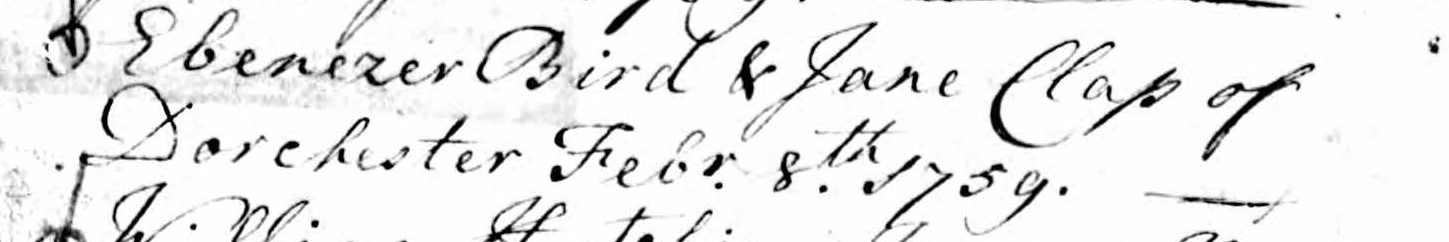 Ebenezer Bird & Jane Clap of
Dorchester Febr. 8.th 1759.